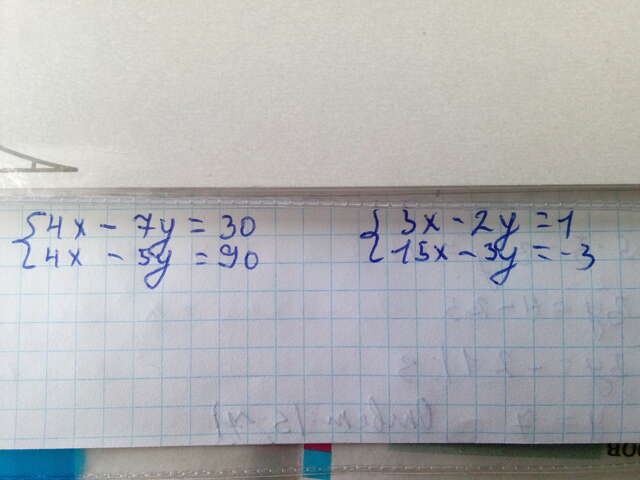 { 4x - 7y = 30
{ 4x - 5y = 90
{ 3x - 2y = 1
{ 15x - 3y = -3